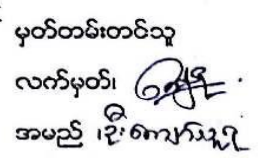 မှတ်တမ်းတင်သူ
လက်မှတ်၊
အမည် ၊ဦးကျော်သူရ